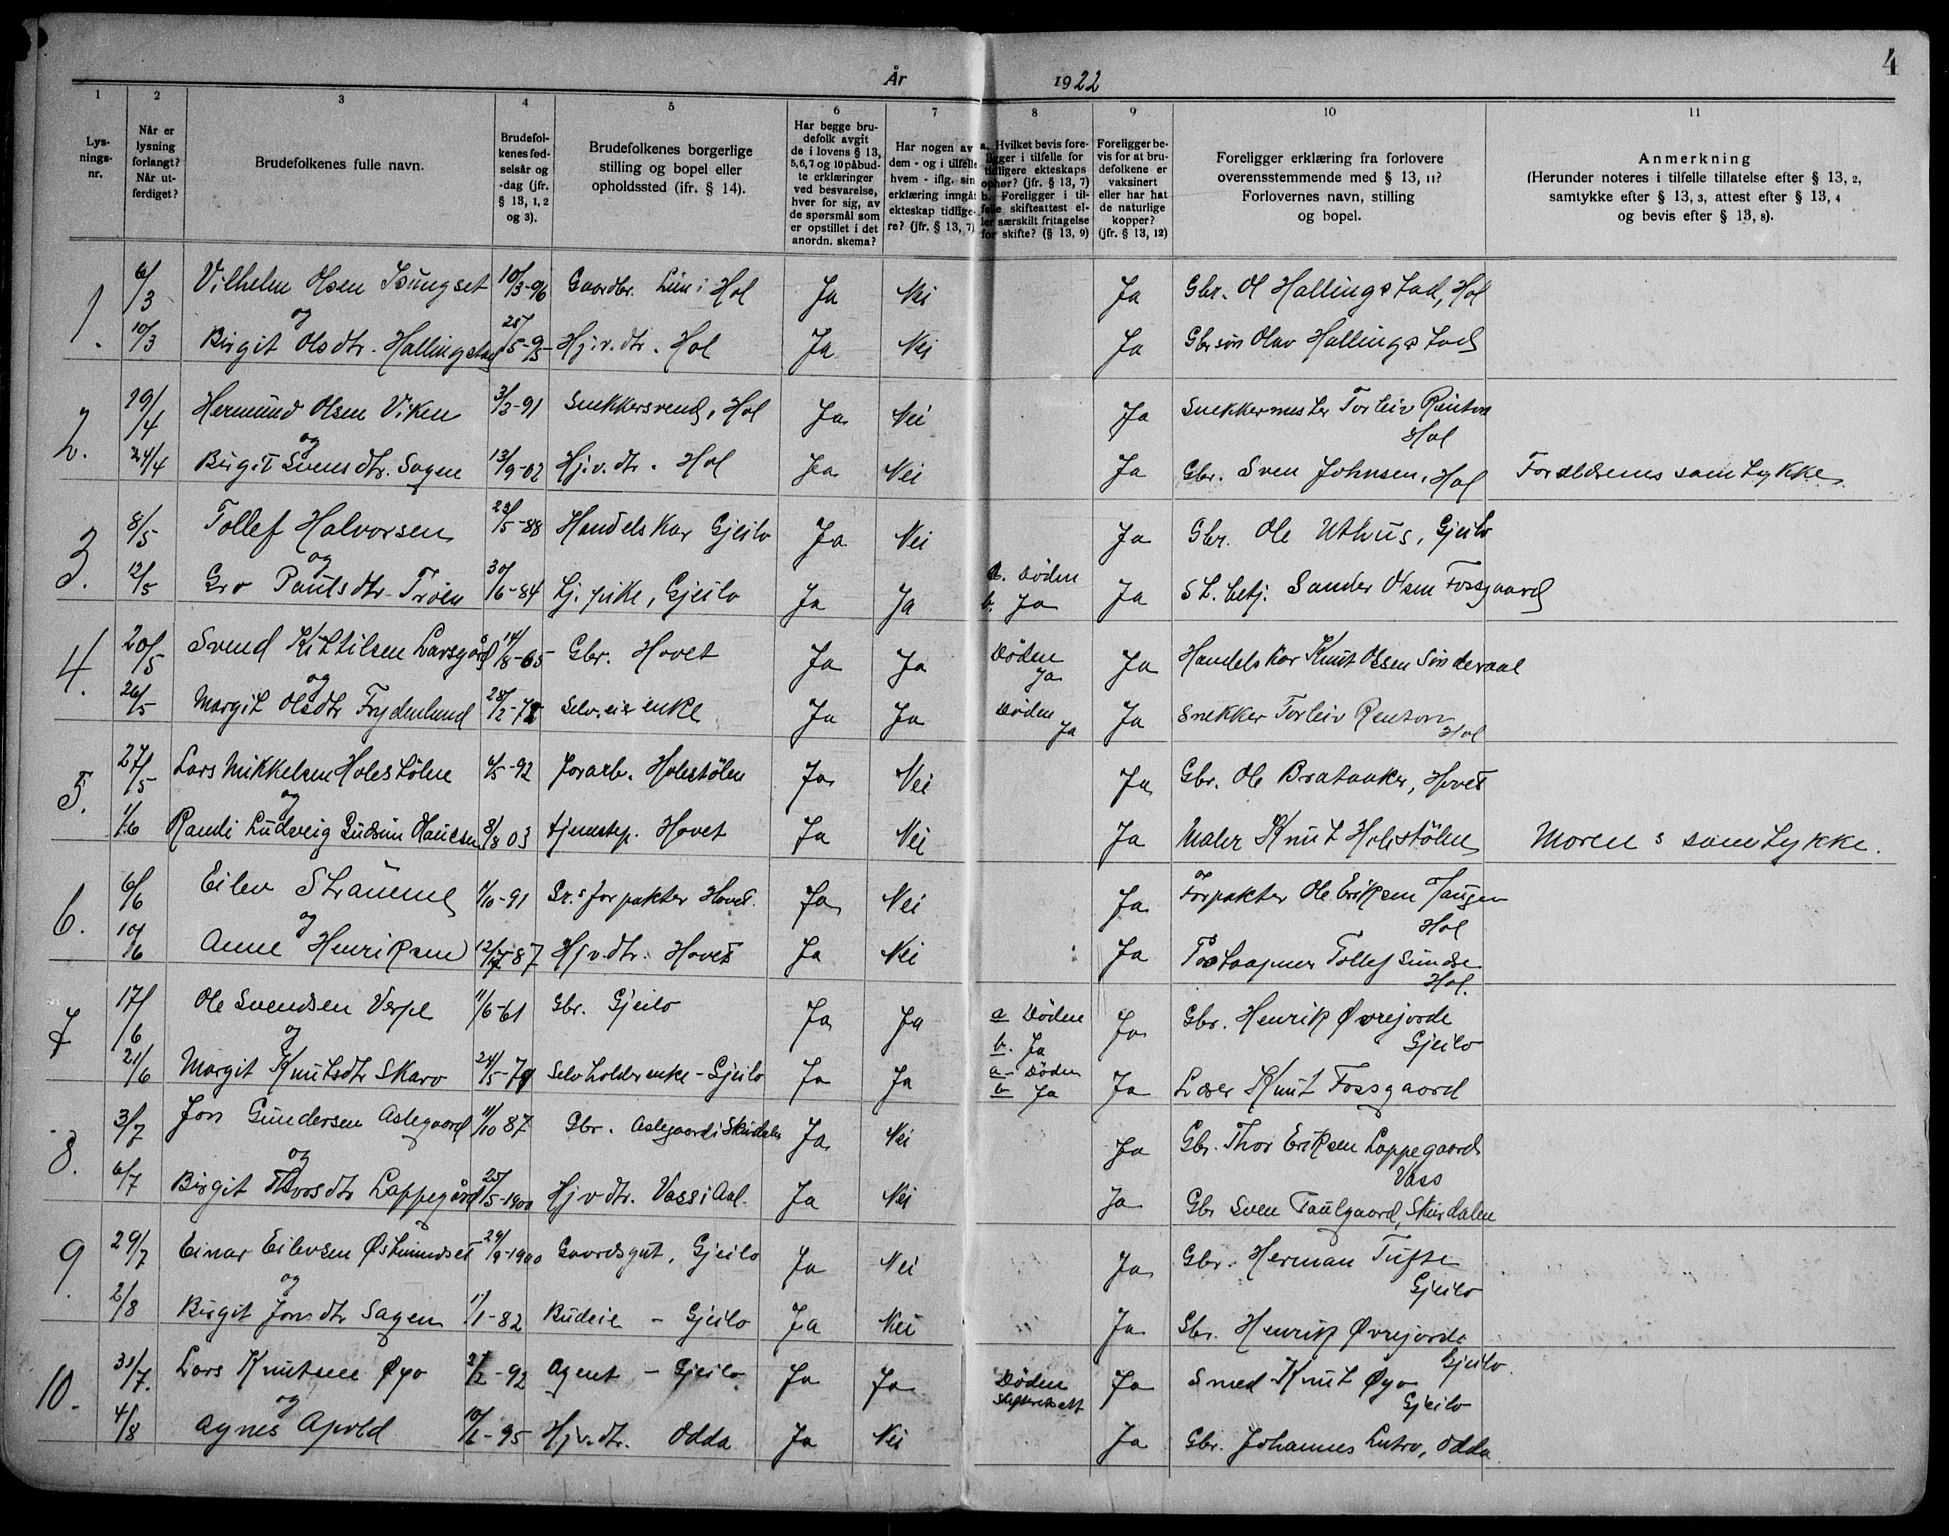 År 1922 4
1 2 3 4 5 6 7 8 9 10 11
Lys-
nings-
nr.
Når er
lysning
forlangt?
Når ut-
ferdiget?
Brudefolkenes fulle navn.
Brudefol-
kenes fød-
selsår og
-dag (jfr.
§ 13, 1, 2
og 3).
Brudefolkenes borgerlige
stilling og bopel eller
opholdssted (ifr. § 14).
Har begge bru-
defolk avgit
de i lovens § 13,
5, 6, 7 og 10 påbud-
te erklæringer
ved besvarelse,
hver for sig, av
de spørsmål som
er opstillet i det
anordn. skema?
Har nogen av
dem - og i tilfelle
hvem - iflg. sin
erklæring inngått
ekteskap tidlige-
re? (jfr. § 13, 7)
a. Hvilket bevis fore-
ligger i tilfelle for
tidligere ekteskaps
ophør? (jfr. § 13, 7)
b. Foreligger i til-
felle skifteattest el-
ler særskilt fritagelse
for skifte? (§ 13, 9)
Foreligger be-
vis for at bru-
defolkene er
vaksinert
eller har hat
de naturlige
kopper?
(jfr. § 13, 12)
Foreligger erklæring fra forlovere
overensstemmende med § 13, 11?
Forlovernes navn, stilling
og bopel.
Anmerkning
(Herunder noteres i tilfelle tillatelse efter § 13, 2,
samtykke efter § 13, 3, attest efter § 13, 4
og bevis efter § 13, 8).
1. 6/3 Vilhelm Olsen Isungset 10/3-96 Gaardbr. Lien i Hol Ja Nei Ja Gbr. Ol Hallingstad, Hol
og
10/3 Birgit Olsdtr. Hallingstad 25/5-95 Hj.v.dtr. Hol Ja Nei Ja Gbrsøn Olav Hallingstad
2. 19/4 Hermund Olsen Viken 3/3-91 Snekkersvend, Hol Ja Nei Ja Snekkermester Torleiv Renton
og Hol
24/4 Birgit Svensdtr. Sagen 13/9-02 Hj.v.dtr. Hol Ja Nei Ja Gbr. Sven Johnsen, Hol Forældrenes samtykke.
3. 8/5 Tollef Halvorsen 23/5-88 Handelskar Gjeilo Ja Nei Ja Gbr. Ole Uthus, Gjeilo
og
12/5 Gro Paulsdtr. Trøen 30/6-84 Tj. pike, Gjeilo Ja Ja a. Døden b. Ja Ja St. betj. Sander Olsen Fossgaard
4. 20/5 Svend Kittilsen Larsgård 14/8-65 Gbr. Hovet Ja Ja Døden Ja Ja Handelskar Knut Olsen Sønderaal
og
26/5 Margit Olsdtr Frydenlund 28/2-72 Selv.eier enke Ja Ja Døden Ja Ja Snekker Torleiv Renton
Hol
5. 27/5 Lars Mikkelsen Holestølen 4/5-92 Jorarb. Holestølen Ja Nei Ja Gbr. Ole Brataaker, Hovet
og
1/6 Randi Ludveig Gudrun Hansen 8/8 03 tjenestep. Hovet Ja Nei Ja Maler Knut Holestølen Morens samtykke.
6. 6/6 Eilev Strømme 1/10-91 Br.s forpakter Hovet. Ja Nei Ja Forpakter Ole Eriksen Haugen
og Hol
10/6 Anne Henriksen 12/7-87 Hj.v.dtr. Hovet Ja Nei Ja Postaapner Tollef Sundre
Hol.
7 17/6 Ole Svendsen Verpe 11/6-61 Gbr. Gjeilo Ja Ja a Døden b. Ja Ja Gbr. Henrik Øvrejorde
og Gjeilo
21/6 Margit Knutsdtr Skaro 24/5-79 Selvholder enke - Gjeilo Ja Ja a- Døden b Ja Ja Lærer Knut Fossgaard
8. 3/7 Jon Gundersen Aslegaard 11/10 87 Gbr. Aslegaard i Skurdalen Ja Nei Ja Gbr. Thor Eriksen Lappegaard
og Vass
6/7 Birgit Thorsdtr Lappegård 25/5-1900 Hj v dtr. Vass i Aal. Ja Nei Ja Gbr Sven Taulgaard, Skurdalen
9. 29/7 Einar Eilevsen Østmundset 29/9-1900 Gaardsgut, Gjeilo Ja Nei Ja Gbr. Herman Tufte
og Gjeilo
2/8 Birgit Jonsdtr Sagen 11/1-82 Budeie - Gjeilo Ja Nei Ja Gbr. Henrik Øvrejorde
Gjeilo
10. 31/7. Lars Knutsen Øyo 2/2-92 Agent - Gjeilo Ja Ja Døden Ja Smed Knut Øyo
og Gjeilo
4/8 Agnes Apold 10/1-95 Hj.v.dtr. Odda Ja Nei Ja Gbr. Johannes Lutro, Odda